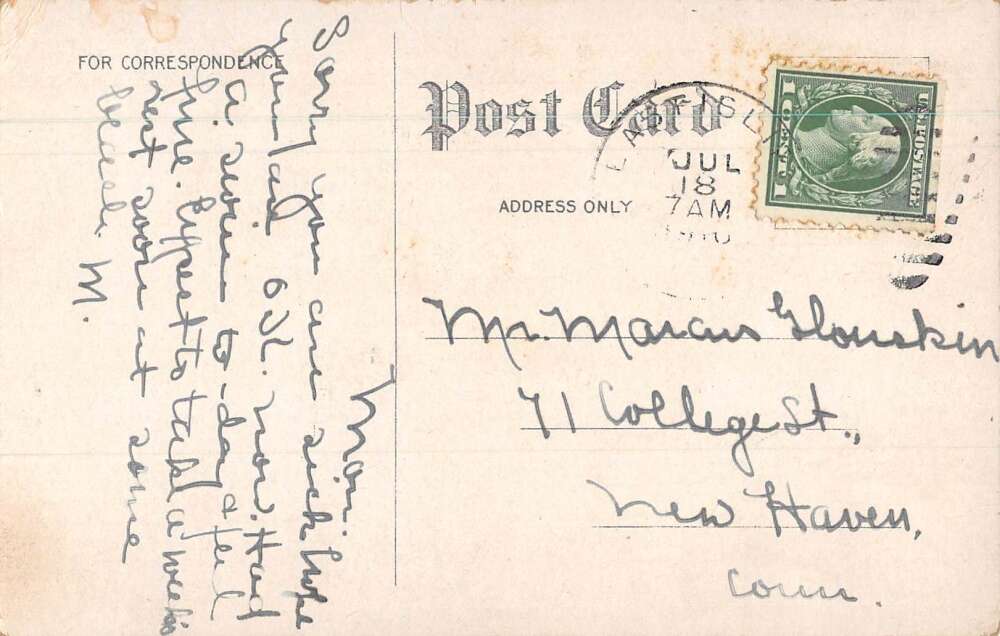 FOR CORRESPONDENCE
Post Card
ADDRESS ONLY
EAST ISLIP
JUL
18
7 AM
1910
U.S. POSTAGE
1 CENT 1
Mon.
Sorry you are sick hope
you are O.K. now. Had
a swim to-day & feel
fine. Expect to take a week's
rest soon at some
beach. M.
Mr. Marcus Glouskin
71 College St.,
New Haven,
Conn.